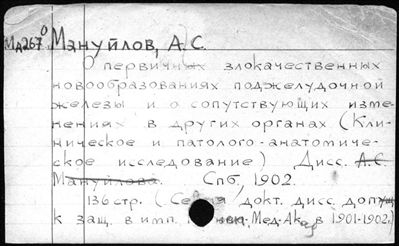 Мд267⁰ Мануйлов, А.С.
О первичных злокачественных
новообразованиях поджелудочной
железы и о сопутствующих изме-
нениях в других органах (Кли-
ническое и патолого-анатомиче-
ское исследование) Дисс. А.С.
Мануйлова. Спб, 1902.
136 стр. (Серия докт. дисс. допущ
к защ. в имп. Мед-Акад в 1901-1902.)